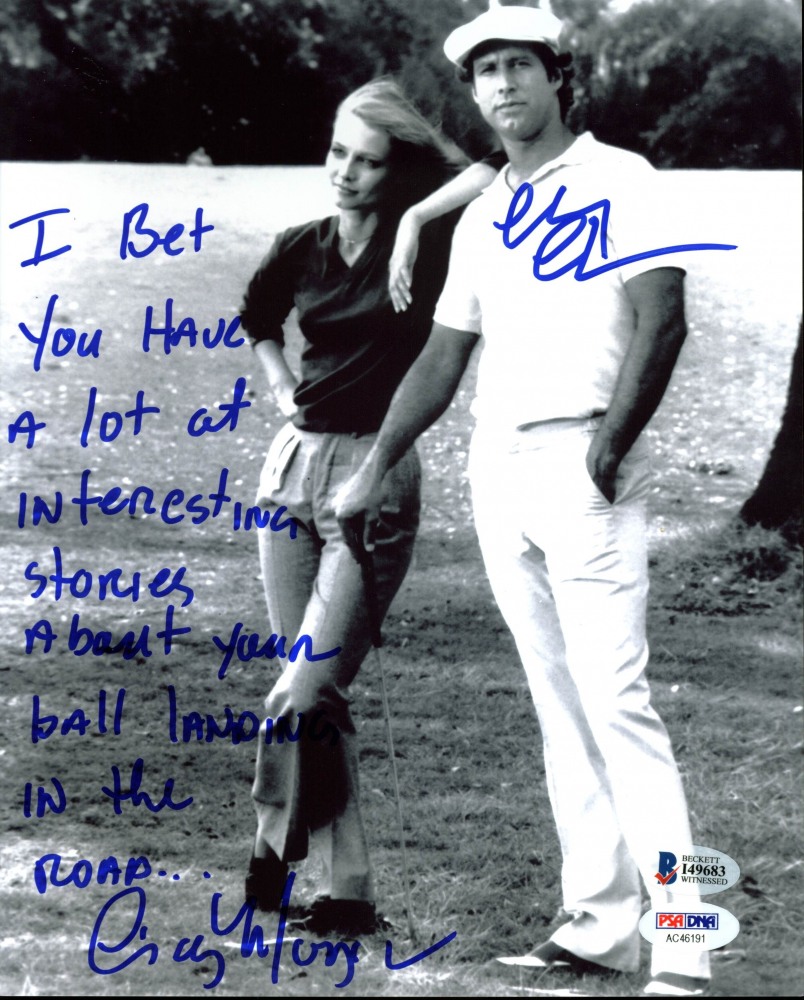 I Bet
You Have
A lot at
INteresting
stories
About your
ball landing
IN the
ROAD...
Cindy Morgan
BECKETT
I49683
WITNESSED
PSA DNA
AC46191